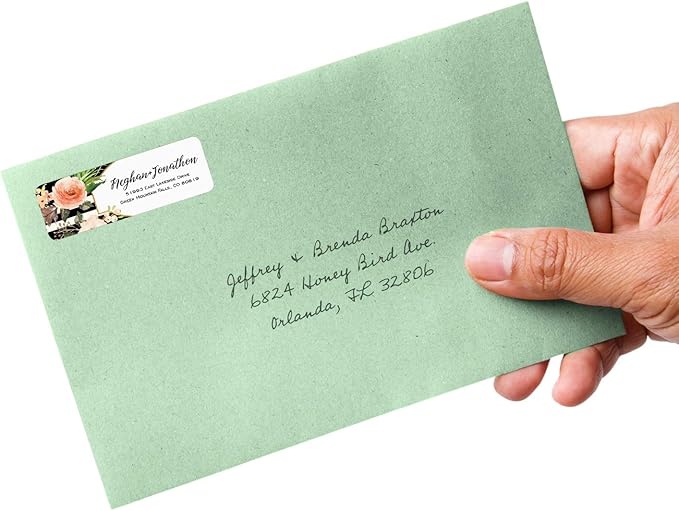 Meghan+Jonathon
51993 East Lakeside Drive
Green Mountain Falls, CO 80819
Jeffrey & Brenda Braxton
6824 Honey Bird Ave.
Orlanda, FL 32806